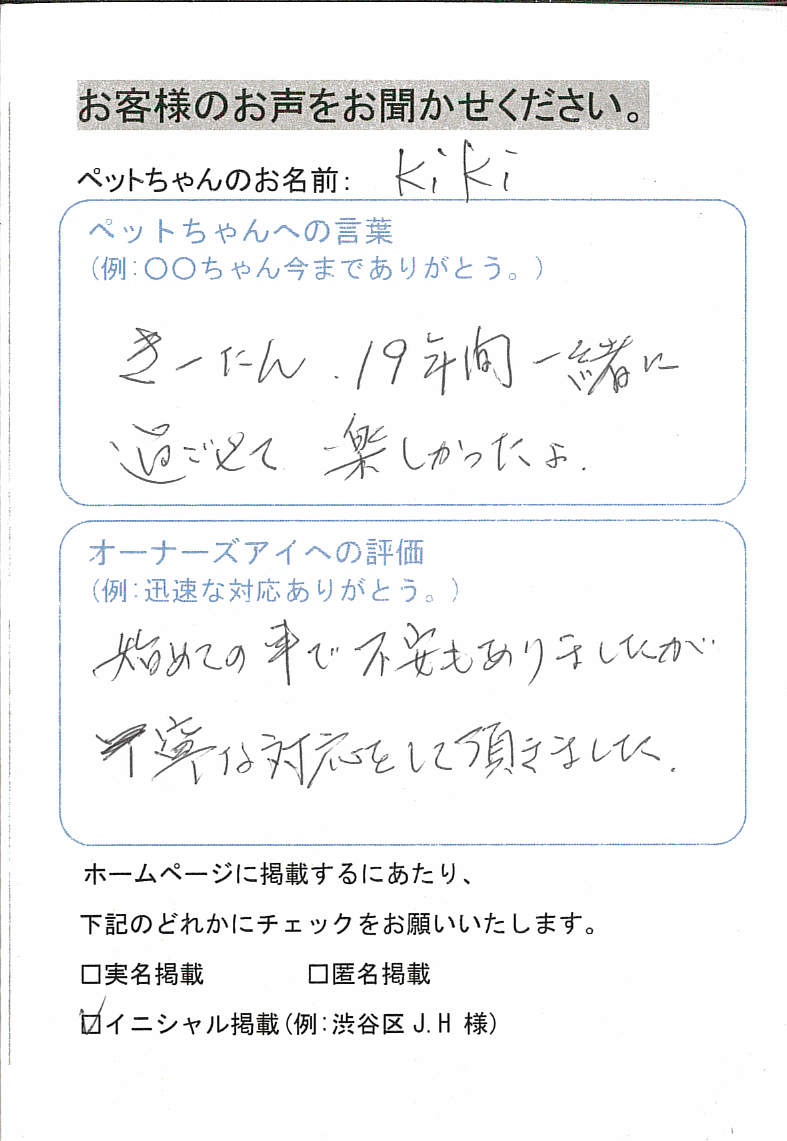 お客様のお声をお聞かせください。
ペットちゃんのお名前: kiki
ペットちゃんへの言葉
(例:〇〇ちゃん今までありがとう。)
きーたん.19年間一緒に
過ごせて楽しかったよ.
オーナーズアイへの評価
(例:迅速な対応ありがとう。)
始めての事で不安もありましたが
丁寧な対応をして頂きました.
ホームページに掲載するにあたり、
下記のどれかにチェックをお願いいたします。
□実名掲載 □匿名掲載
☑イニシャル掲載(例:渋谷区J.H 様)